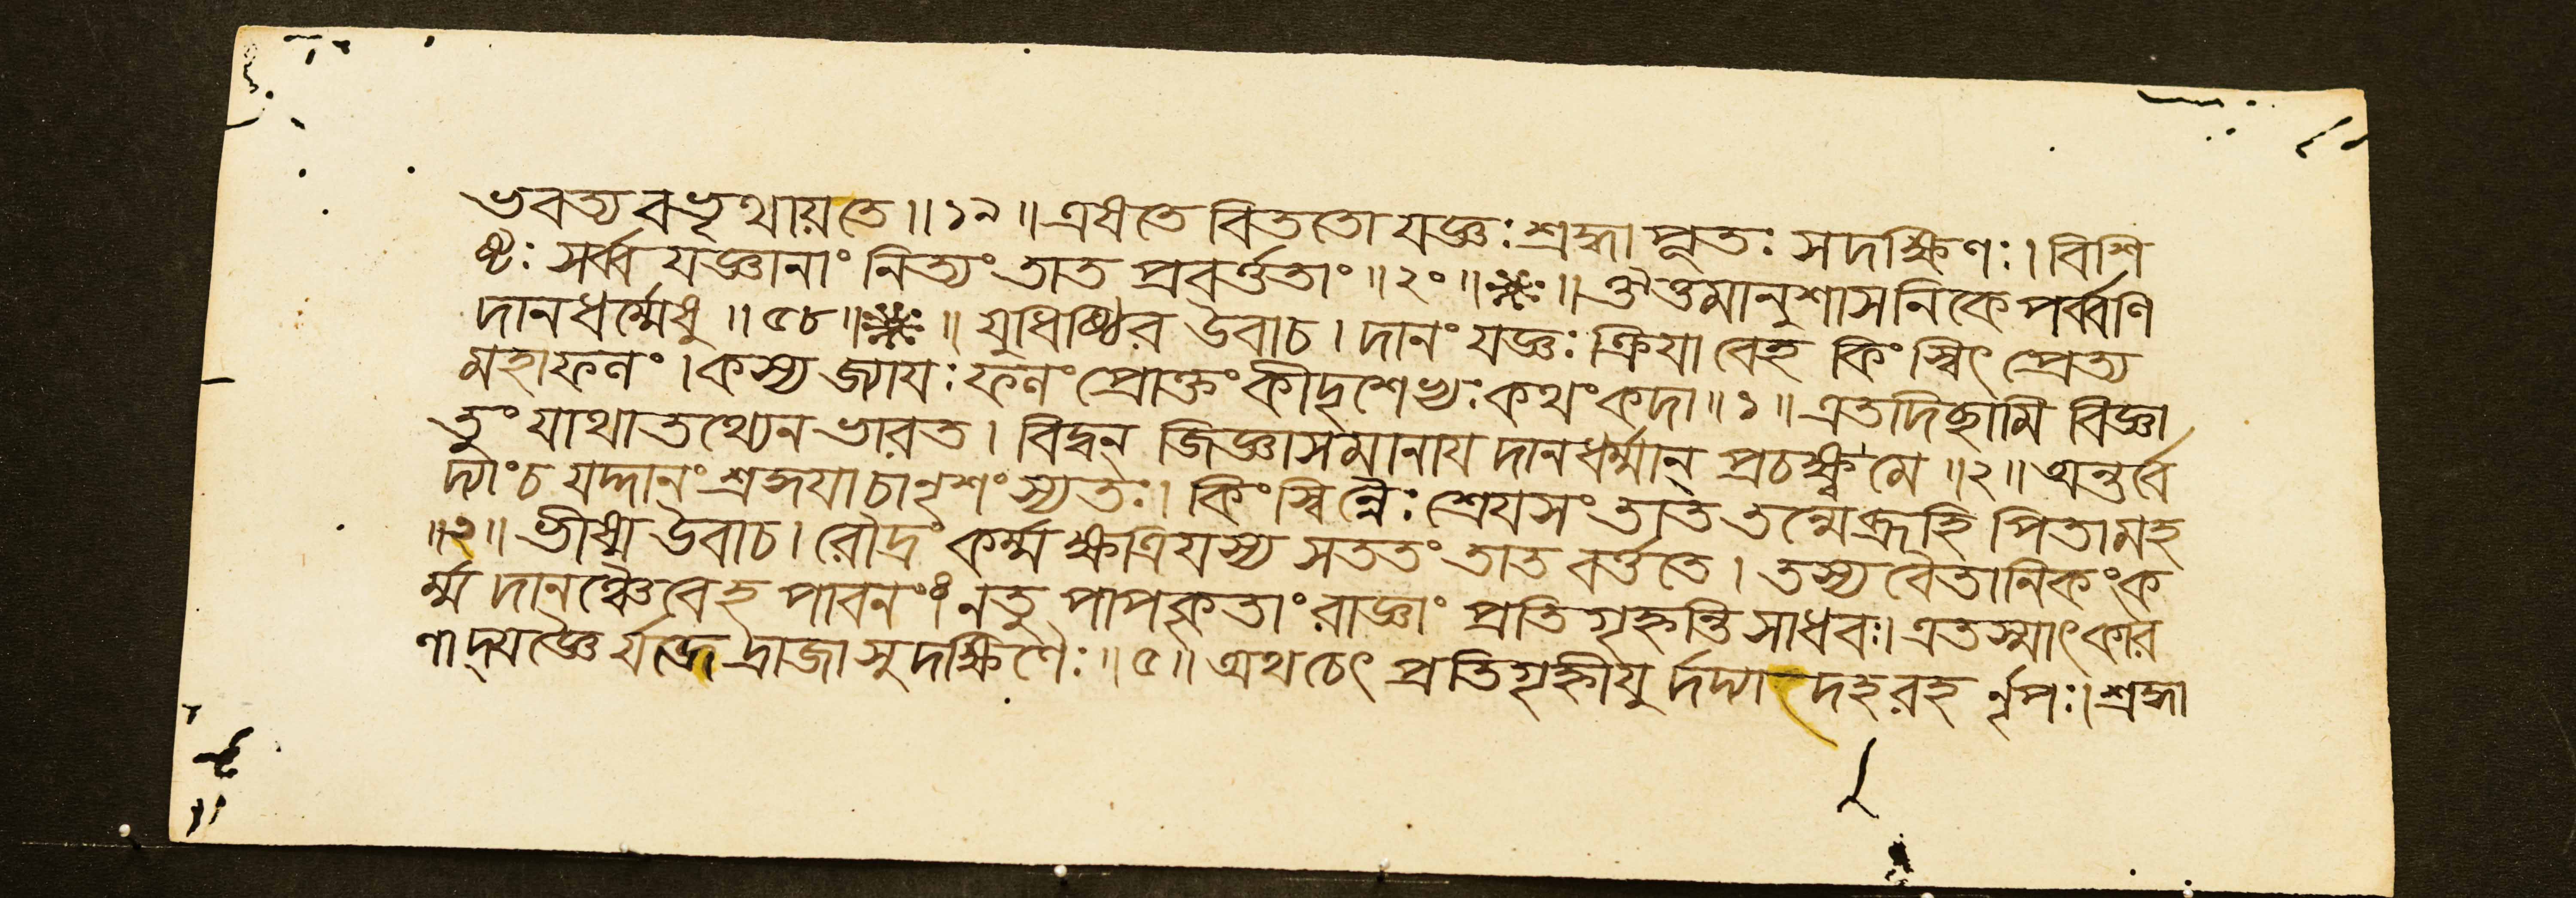 ভবত্যবভৃথায়তে॥১৯॥এষতে বিততো যজ্ঞঃশ্রদ্ধাপূতঃ সদক্ষিণঃ।বিশি
ষ্টঃ সর্ব্বযজ্ঞানাং নিত্যং তাত প্রবর্ত্ততাং॥২০॥ঃ॥ঔত্তমানুশাসনিকে পর্ব্বণি
দানধর্ম্মেষু॥৫৮॥ঃ॥ যুধিষ্ঠির উবাচ। দানং যজ্ঞঃ ক্রিযা বেহ কিংস্বিৎ প্রেত্য
মহাফলং।কস্য জ্যাযঃফলং প্রোক্তং কীদৃশেভ্যঃকথংকদা॥১॥এতদিছামি বিজ্ঞা
তুং যাথাতথ্যেন ভারত। বিদ্বন্ জিজ্ঞাসমানায দানধর্ম্মান্ প্রচক্ষ্ব মে॥২॥অন্তর্বে
দ্যাংচ যদ্দানং শ্রদ্ধযাচানৃশংস্যতঃ। কিংস্বিন্নৈঃশ্রেযসং তাত তন্মেব্রূহি পিতামহ
॥২॥ ভীষ্ম উবাচ। রৌদ্রং কর্ম্ম ক্ষত্রিযস্য সততং তাত বর্ত্ততে। তস্য বৈতানিকংক
র্ম্ম দানঞ্চৈবেহ পাবনং।৪ নতু পাপকৃতাং রাজ্ঞাং প্রতিগৃহ্নন্তি সাধবঃ।এতস্মাৎকার
ণাদ্যজ্ঞৈর্যজেদ্রাজা সুদক্ষিণৈঃ॥৫॥অথচেৎ প্রতিগৃহ্নীযুর্দদ্যাদহরহর্নৃপঃ।শ্রদ্ধা